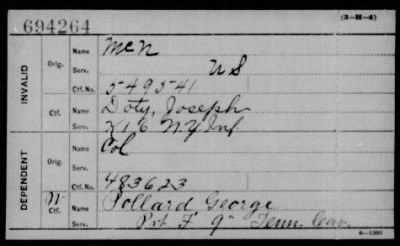 694264
(3-H-4)
INVALID
Orig.
Name McN
Serv. U S
Ctf. No. 549541
Ctf.
Name Doty, Joseph
Serv. K 16 N.Y. Inf
DEPENDENT
Orig.
Name Col
Serv.
Ctf. No. 483623
W
Ctf.
Name Pollard George
Serv. Pvt F 9" Tenn. Cav.